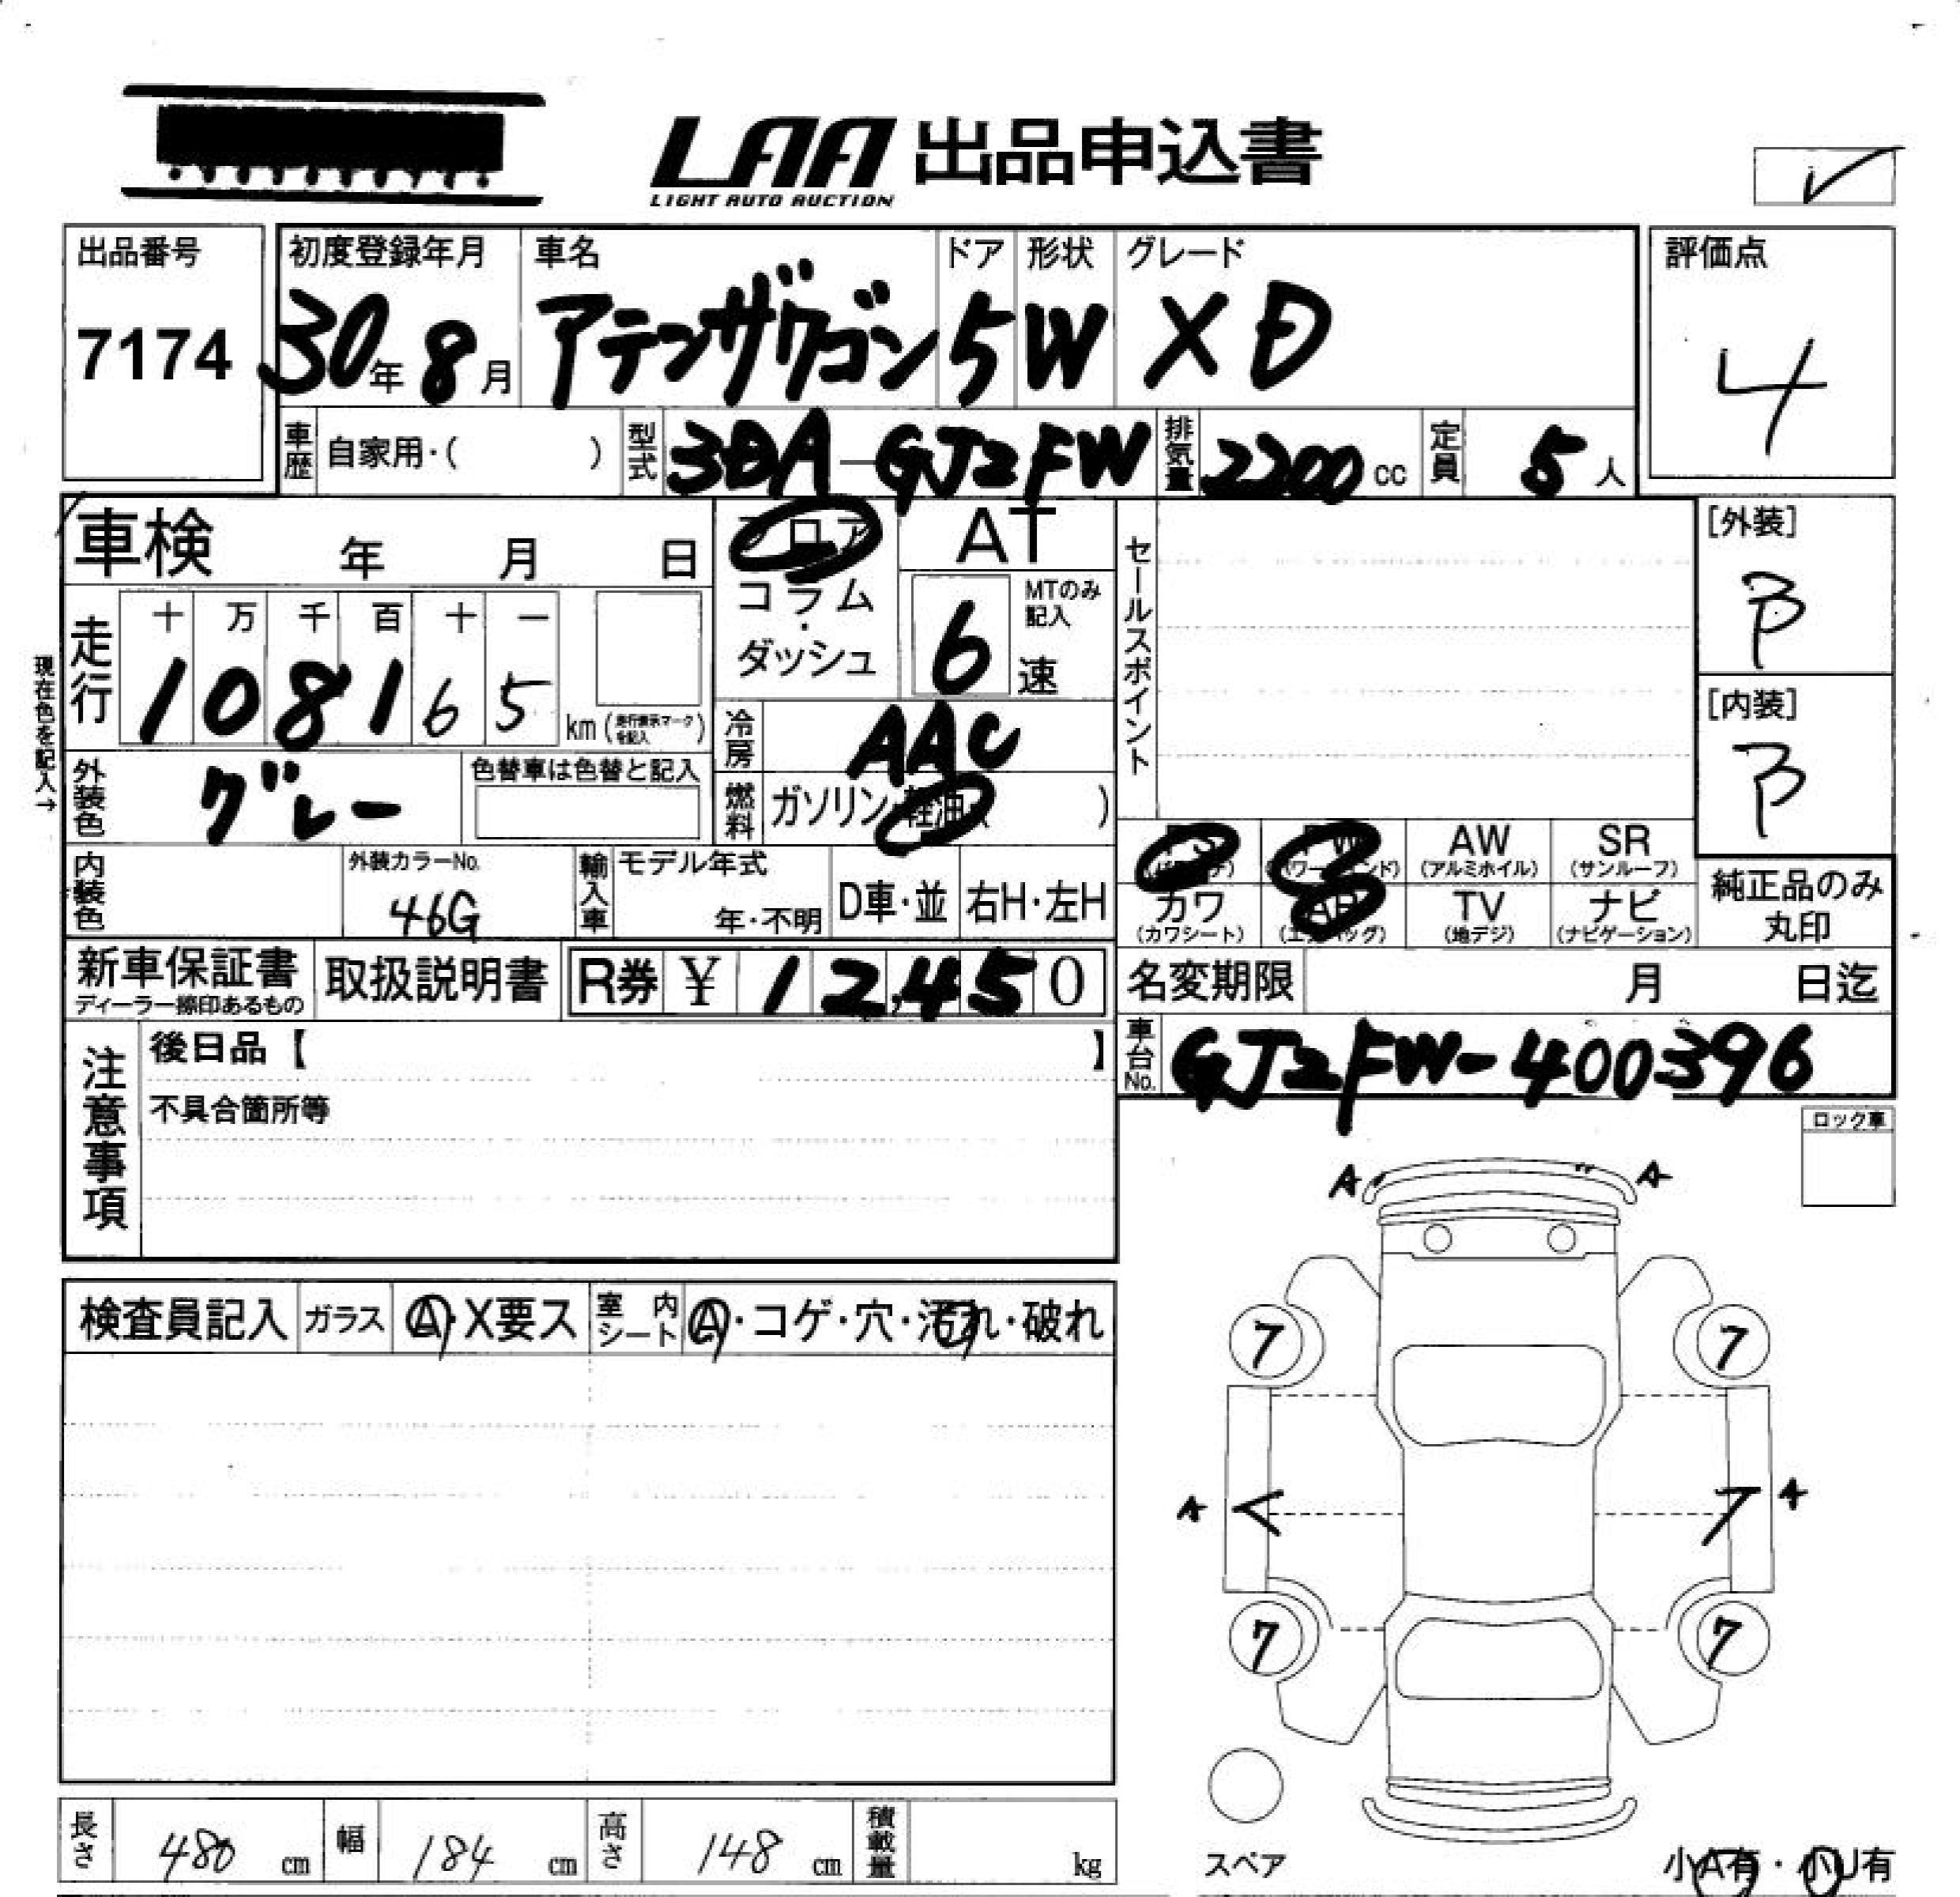 LAA 出品申込書
LIGHT AUTO AUCTION
出品番号
7174
初度登録年月
30年8月
車名
アテンザワゴン
ドア
5
形状
W
グレード
XD
評価点
4
車歴
自家用・( )
型式
3DA-GJ2FW
排気量
2200cc
定員
5人
車検 年 月 日
フロア
コラム
・
ダッシュ
AT
6速
MTのみ
記入
セールスポイント
[外装]
B
[内装]
B
現在色を記入→
走行
十 万 千 百 十 一
1 0 8 1 6 5
km (走行表示マークを記入)
冷房
AAC
燃料
ガソリン・軽油・( )
外装色
グレー
色替車は色替と記入
内装色
外装カラーNo.
46G
輸入車
モデル年式
年・不明
D車・並
右H・左H
PS
(パワステ)
PW
(パワーウィンド)
AW
(アルミホイル)
SR
(サンルーフ)
カワ
(カワシート)
AB
(エアバッグ)
TV
(地デジ)
ナビ
(ナビゲーション)
純正品のみ
丸印
新車保証書
ディーラー捺印あるもの
取扱説明書
R券 ¥ 12,450
名変期限 月 日迄
注意事項
後日品【 】
不具合箇所等
車台No.
GJ2FW-400396
ロック車
検査員記入
ガラス
A・X要ス
室内シート
A・コゲ・穴・汚れ・破れ
A A
7 7
A A
7 7
スペア
小A有・小U有
長さ 480 cm
幅 184 cm
高さ 148 cm
積載量 kg